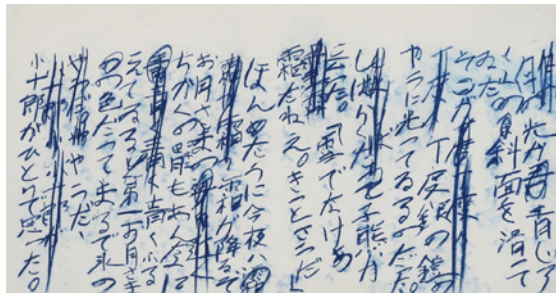 月の光が青じろ
く山の斜面を滑って
ゐた。
そこが
丁度銀の鎧の
やうに光ってゐるのだった。
しばらくたって子熊が
云った。「雪でなけぁ
霜だねえ。きっとさうだ」
ほんたうに今夜ハ
霜が降るぞ
お月さまの
ちかくの胃もあんなに
青くふる
えてゐるし第一お月さま
の色だってまるで氷の
やうだ、
小十郎がひとりで思った。